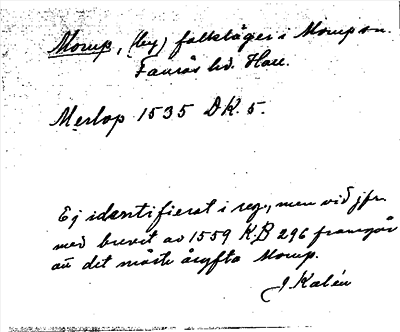 Morup, (by) folkläger i Morup sn.
Faurås hd. Hall.
Merlop 1535 DK. 5.
Ej identifierat i reg., men vid jfr.
med brevet av 1559 KB 296 framgår
att det måste åsyfta Morup.
J Kalén